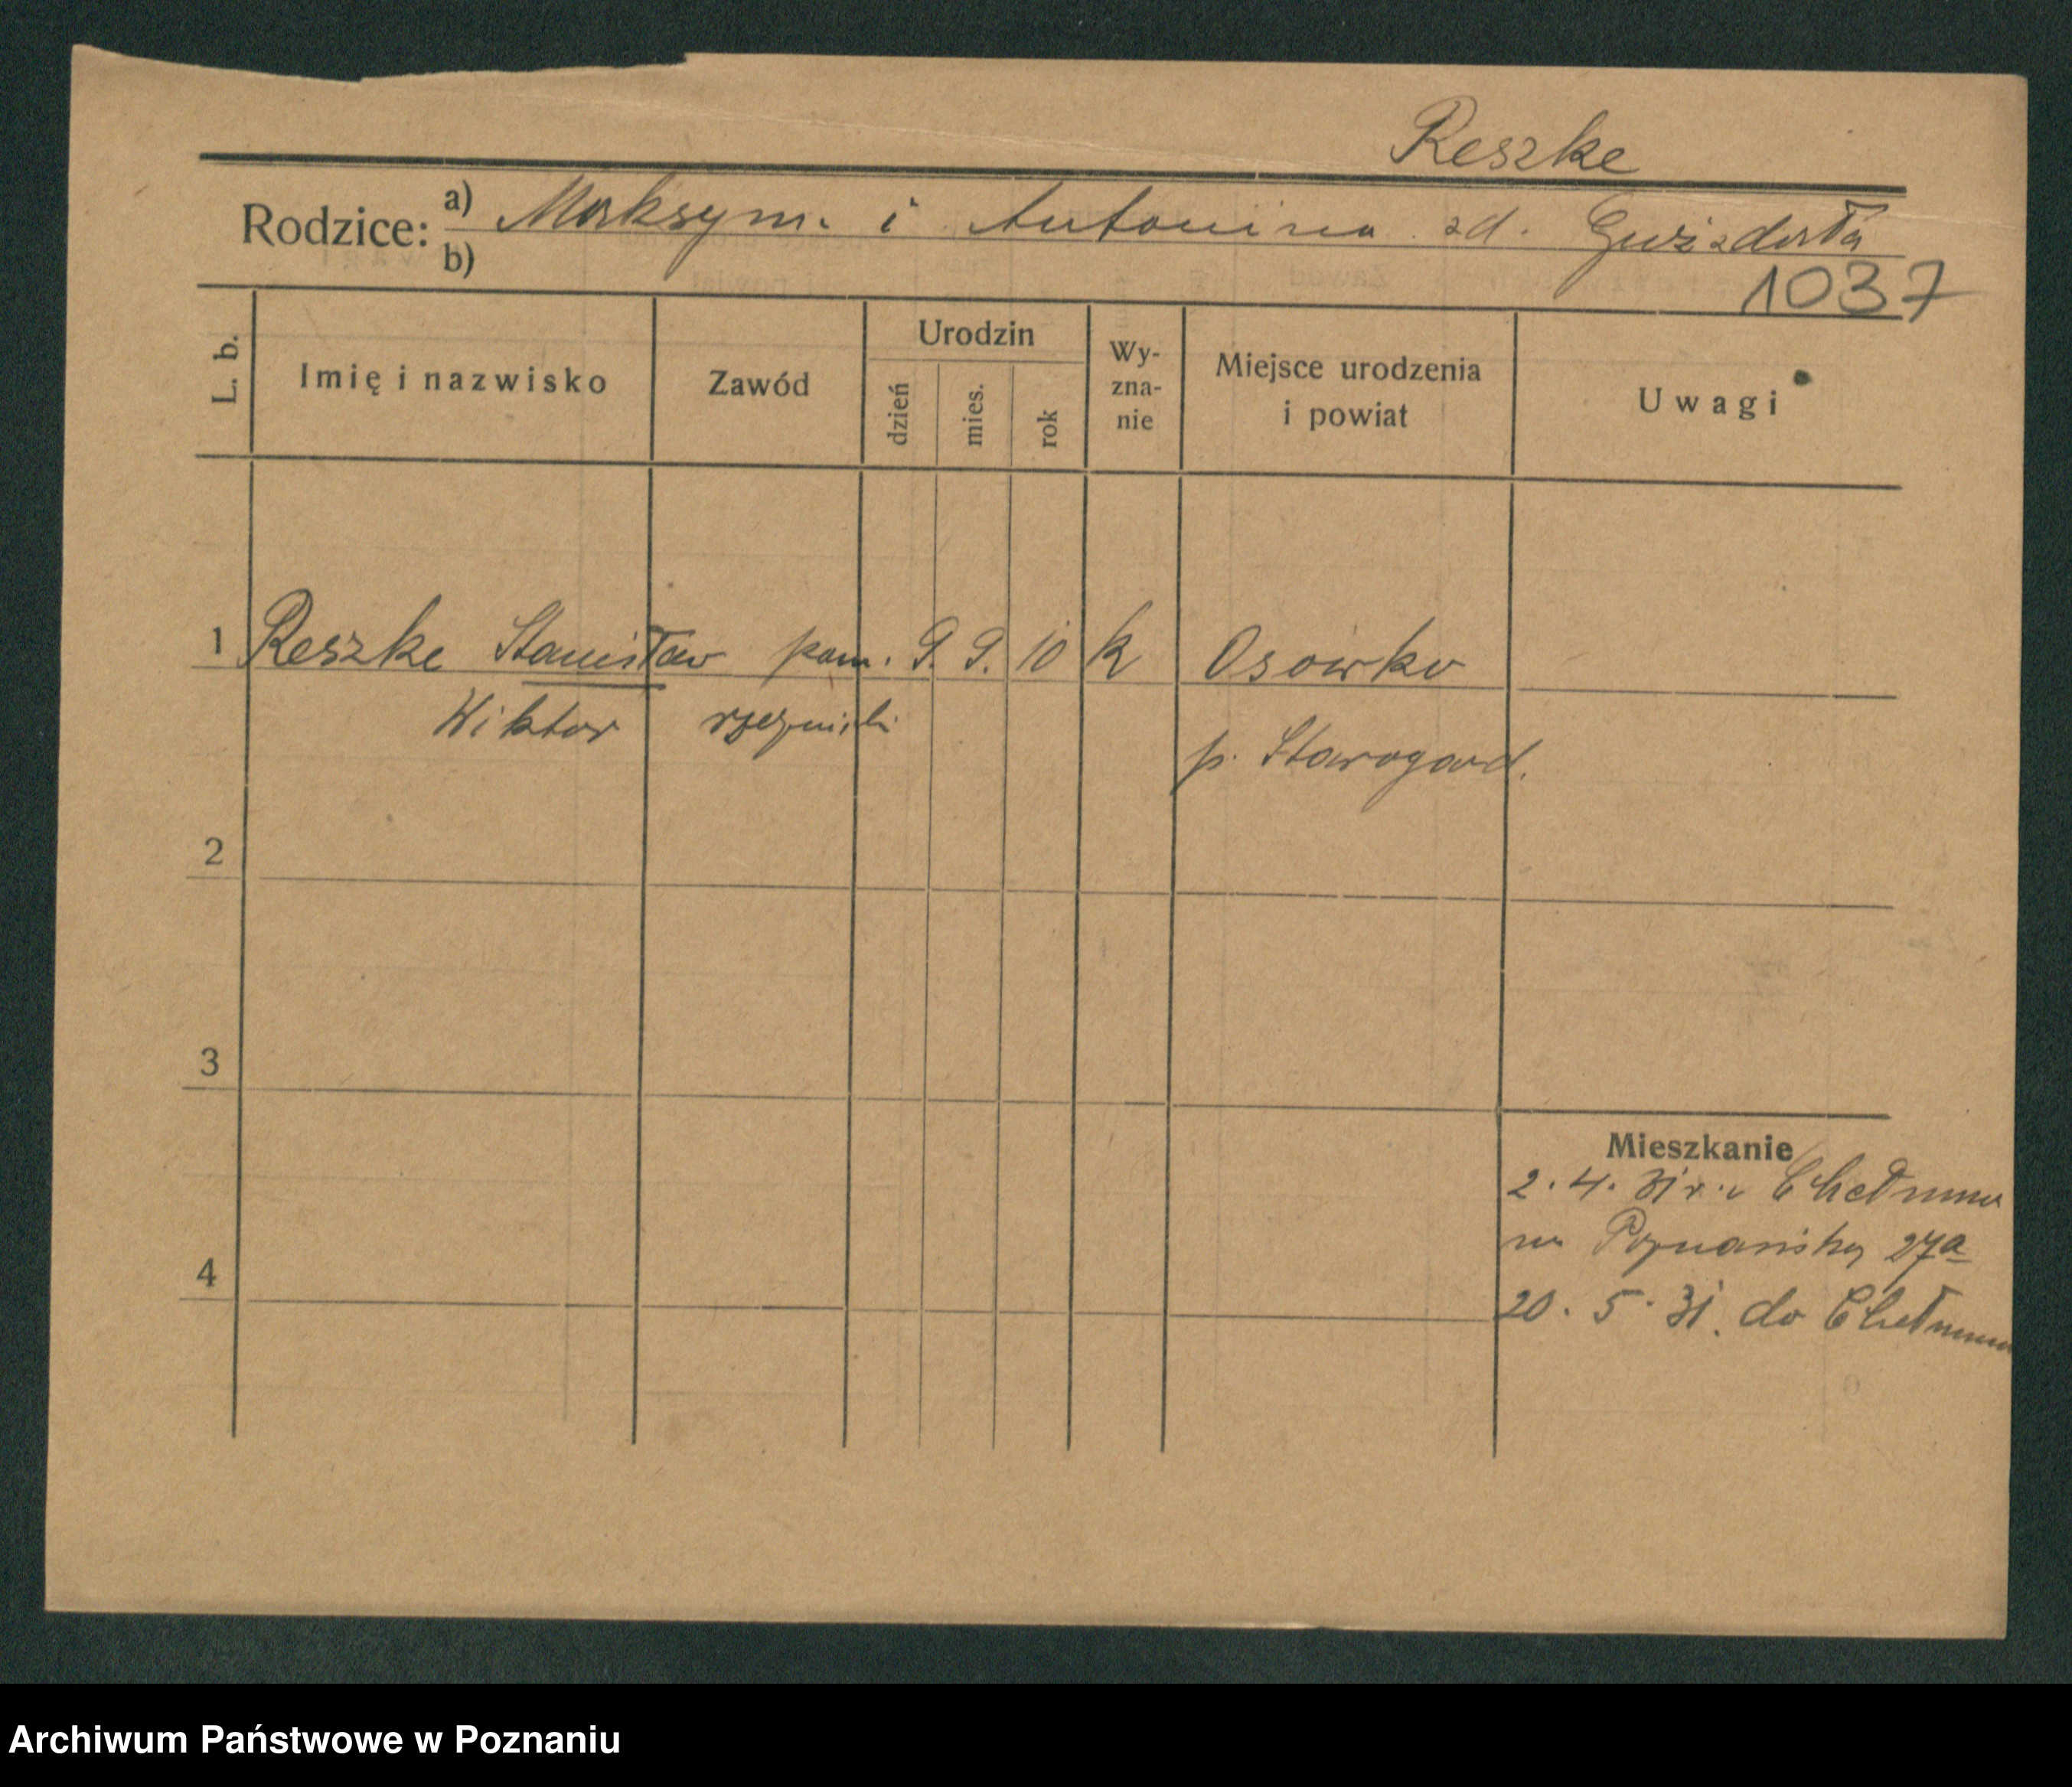 Reszke
Rodzice: a) Maksym. i Antonina zd. Gwizdała
b)
1037
L. b. Imię i nazwisko Zawód Urodzin dzień mies. rok Wy-zna-nie Miejsce urodzenia i powiat Uwagi
1 Reszke Stanisław pom. 9. 9. 10 k Osówko
Wiktor rzeźnicki p. Starogard.
2
3
Mieszkanie
2. 4. 31 r. z Chełmna
na Poznańską 27a
4
20. 5. 31. do Chełmna
Archiwum Państwowe w Poznaniu